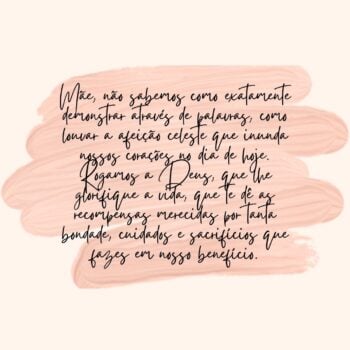 Mãe, não sabemos como exatamente
demonstrar através de palavras, como
louvar a afeição celeste que inunda
nossos corações no dia de hoje.
Rogamos a Deus, que lhe
glorifique a vida, que te dê as
recompensas merecidas por tanta
bondade, cuidados e sacrifícios que
fazes em nosso benefício.